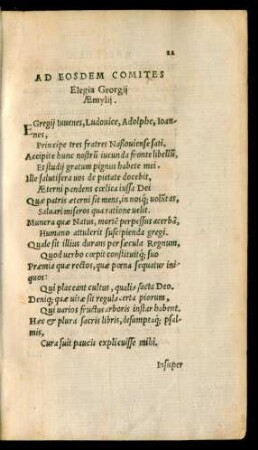 22
AD EOSDEM COMITES
Elegia Georgij
Æmylij.
EGregij Iuuenes, Ludouice, Adolphe, Ioannes,
Principe tres fratres Nassouiense sati,
Accipite hunc nostrũ iucunda fronte libellũ,
Et studij gratum pignus habete mei.
Ille salutifera uos de pietate docebit,
Æterni pandens cœlica iussa Dei
Quæ patris æterni sit mens, in noſq; uolũtas,
Saluari miseros qua ratione uelit.
Munera quæ Natus, mortẽ perpessus acerbã,
Humano attulerit suscipienda gregi.
Quale sit illius durans per sæcula Regnum,
Quod uerbo cœpit constituitq; suo
Præmia quæ rectos, quæ pœna sequatur iniquos:
Qui placeant cultus, qualia facta Deo.
Deniq; quæ uitæ sit regula certa piorum,
Qui uarios fructus arboris instar habent.
Hæc & plura sacris libris, desumptaq; psalmis,
Cura fuit paucis explicuisse mihi.
Insuper